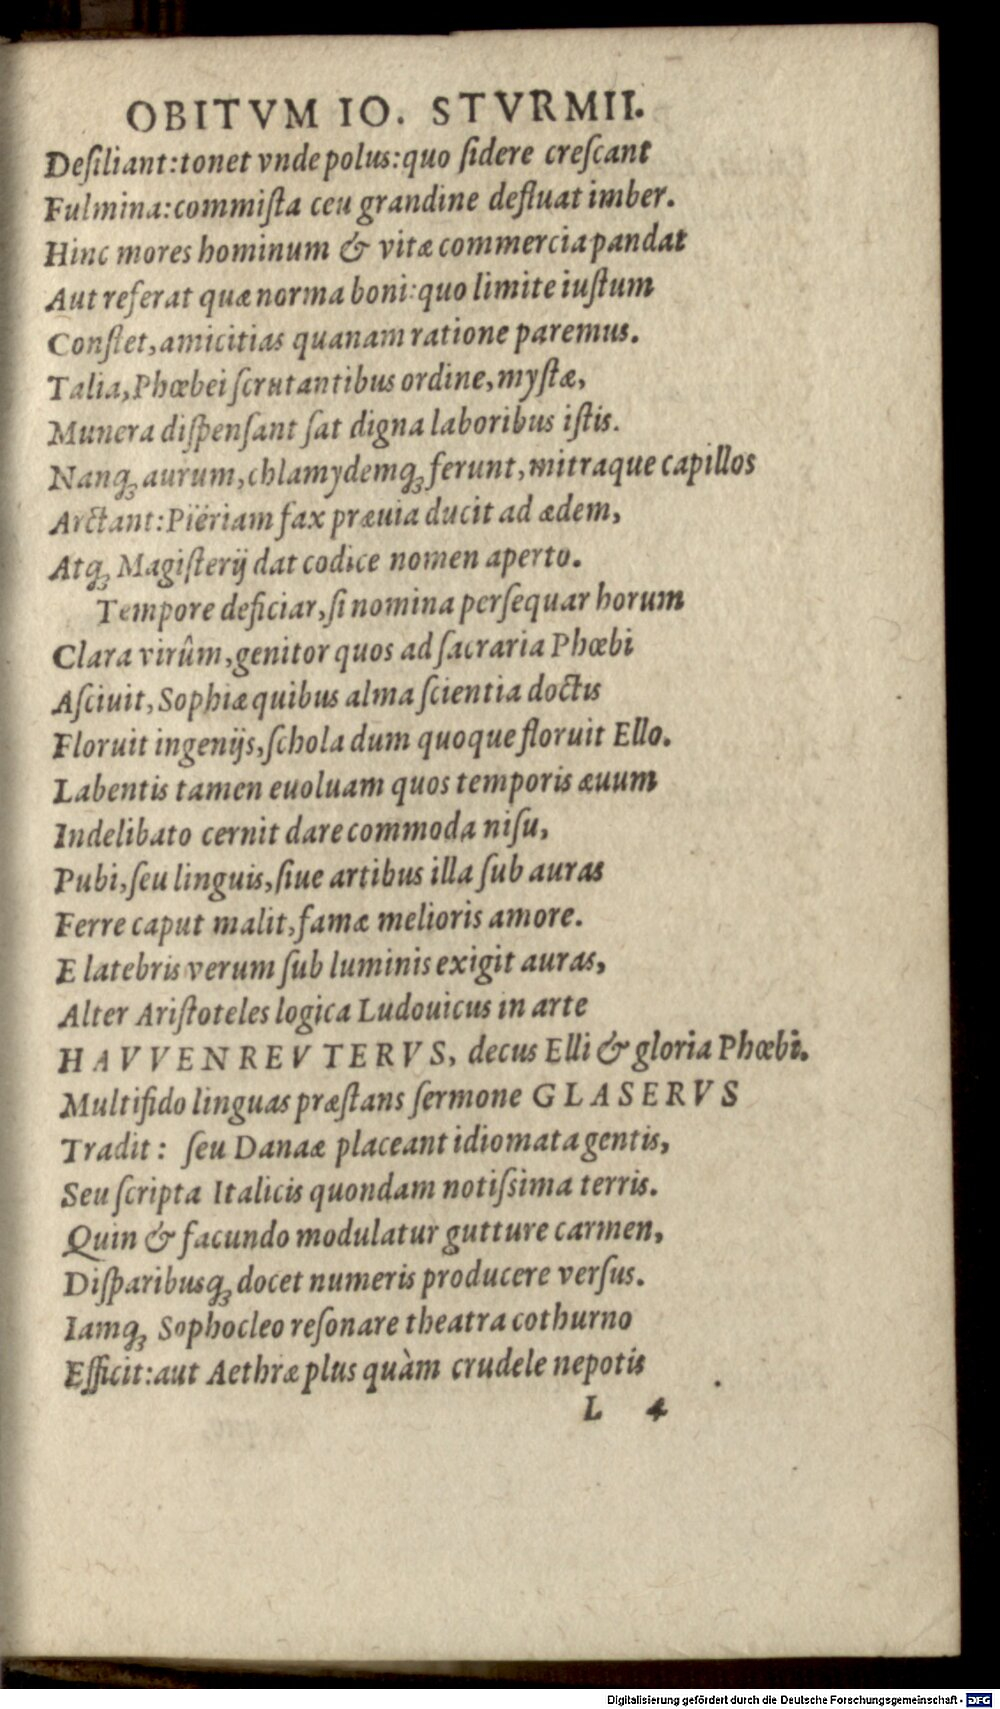 OBITVM IO. STVRMII.
Deſiliant: tonet vnde polus: quo ſidere creſcant
Fulmina: commiſta ceu grandine defluat imber.
Hinc mores hominum & vitæ commercia pandat
Aut referat quæ norma boni: quo limite iuſtum
Conſtet, amicitias quanam ratione paremus.
Talia, Phœbei ſcrutantibus ordine, myſtæ,
Munera diſpenſant ſat digna laboribus iſtis.
Nanq; aurum, chlamydemq; ferunt, mitraque capillos
Arctant: Piëriam fax præuia ducit ad ædem,
Atq; Magiſterij dat codice nomen aperto.
Tempore deficiar, ſi nomina perſequar horum
Clara virûm, genitor quos ad ſacraria Phœbi
Aſciuit, Sophiæ quibus alma ſcientia doctis
Floruit ingenijs, ſchola dum quoque floruit Ello.
Labentis tamen euoluam quos temporis æuum
Indelibato cernit dare commoda niſu,
Pubi, ſeu linguis, ſiue artibus illa ſub auras
Ferre caput malit, famæ melioris amore.
E latebris verum ſub luminis exigit auras,
Alter Ariſtoteles logica Ludouicus in arte
HAVVENREVTERVS, decus Elli & gloria Phœbi.
Multifido linguas præſtans ſermone GLASERVS
Tradit: ſeu Danaæ placeant idiomata gentis,
Seu ſcripta Italicis quondam notiſsima terris.
Quin & facundo modulatur gutture carmen,
Diſparibusq; docet numeris producere verſus.
Iamq; Sophocleo reſonare theatra cothurno
Efficit: aut Aethræ plus quàm crudele nepotis
L 4
Digitalisierung gefördert durch die Deutsche Forschungsgemeinschaft - DFG